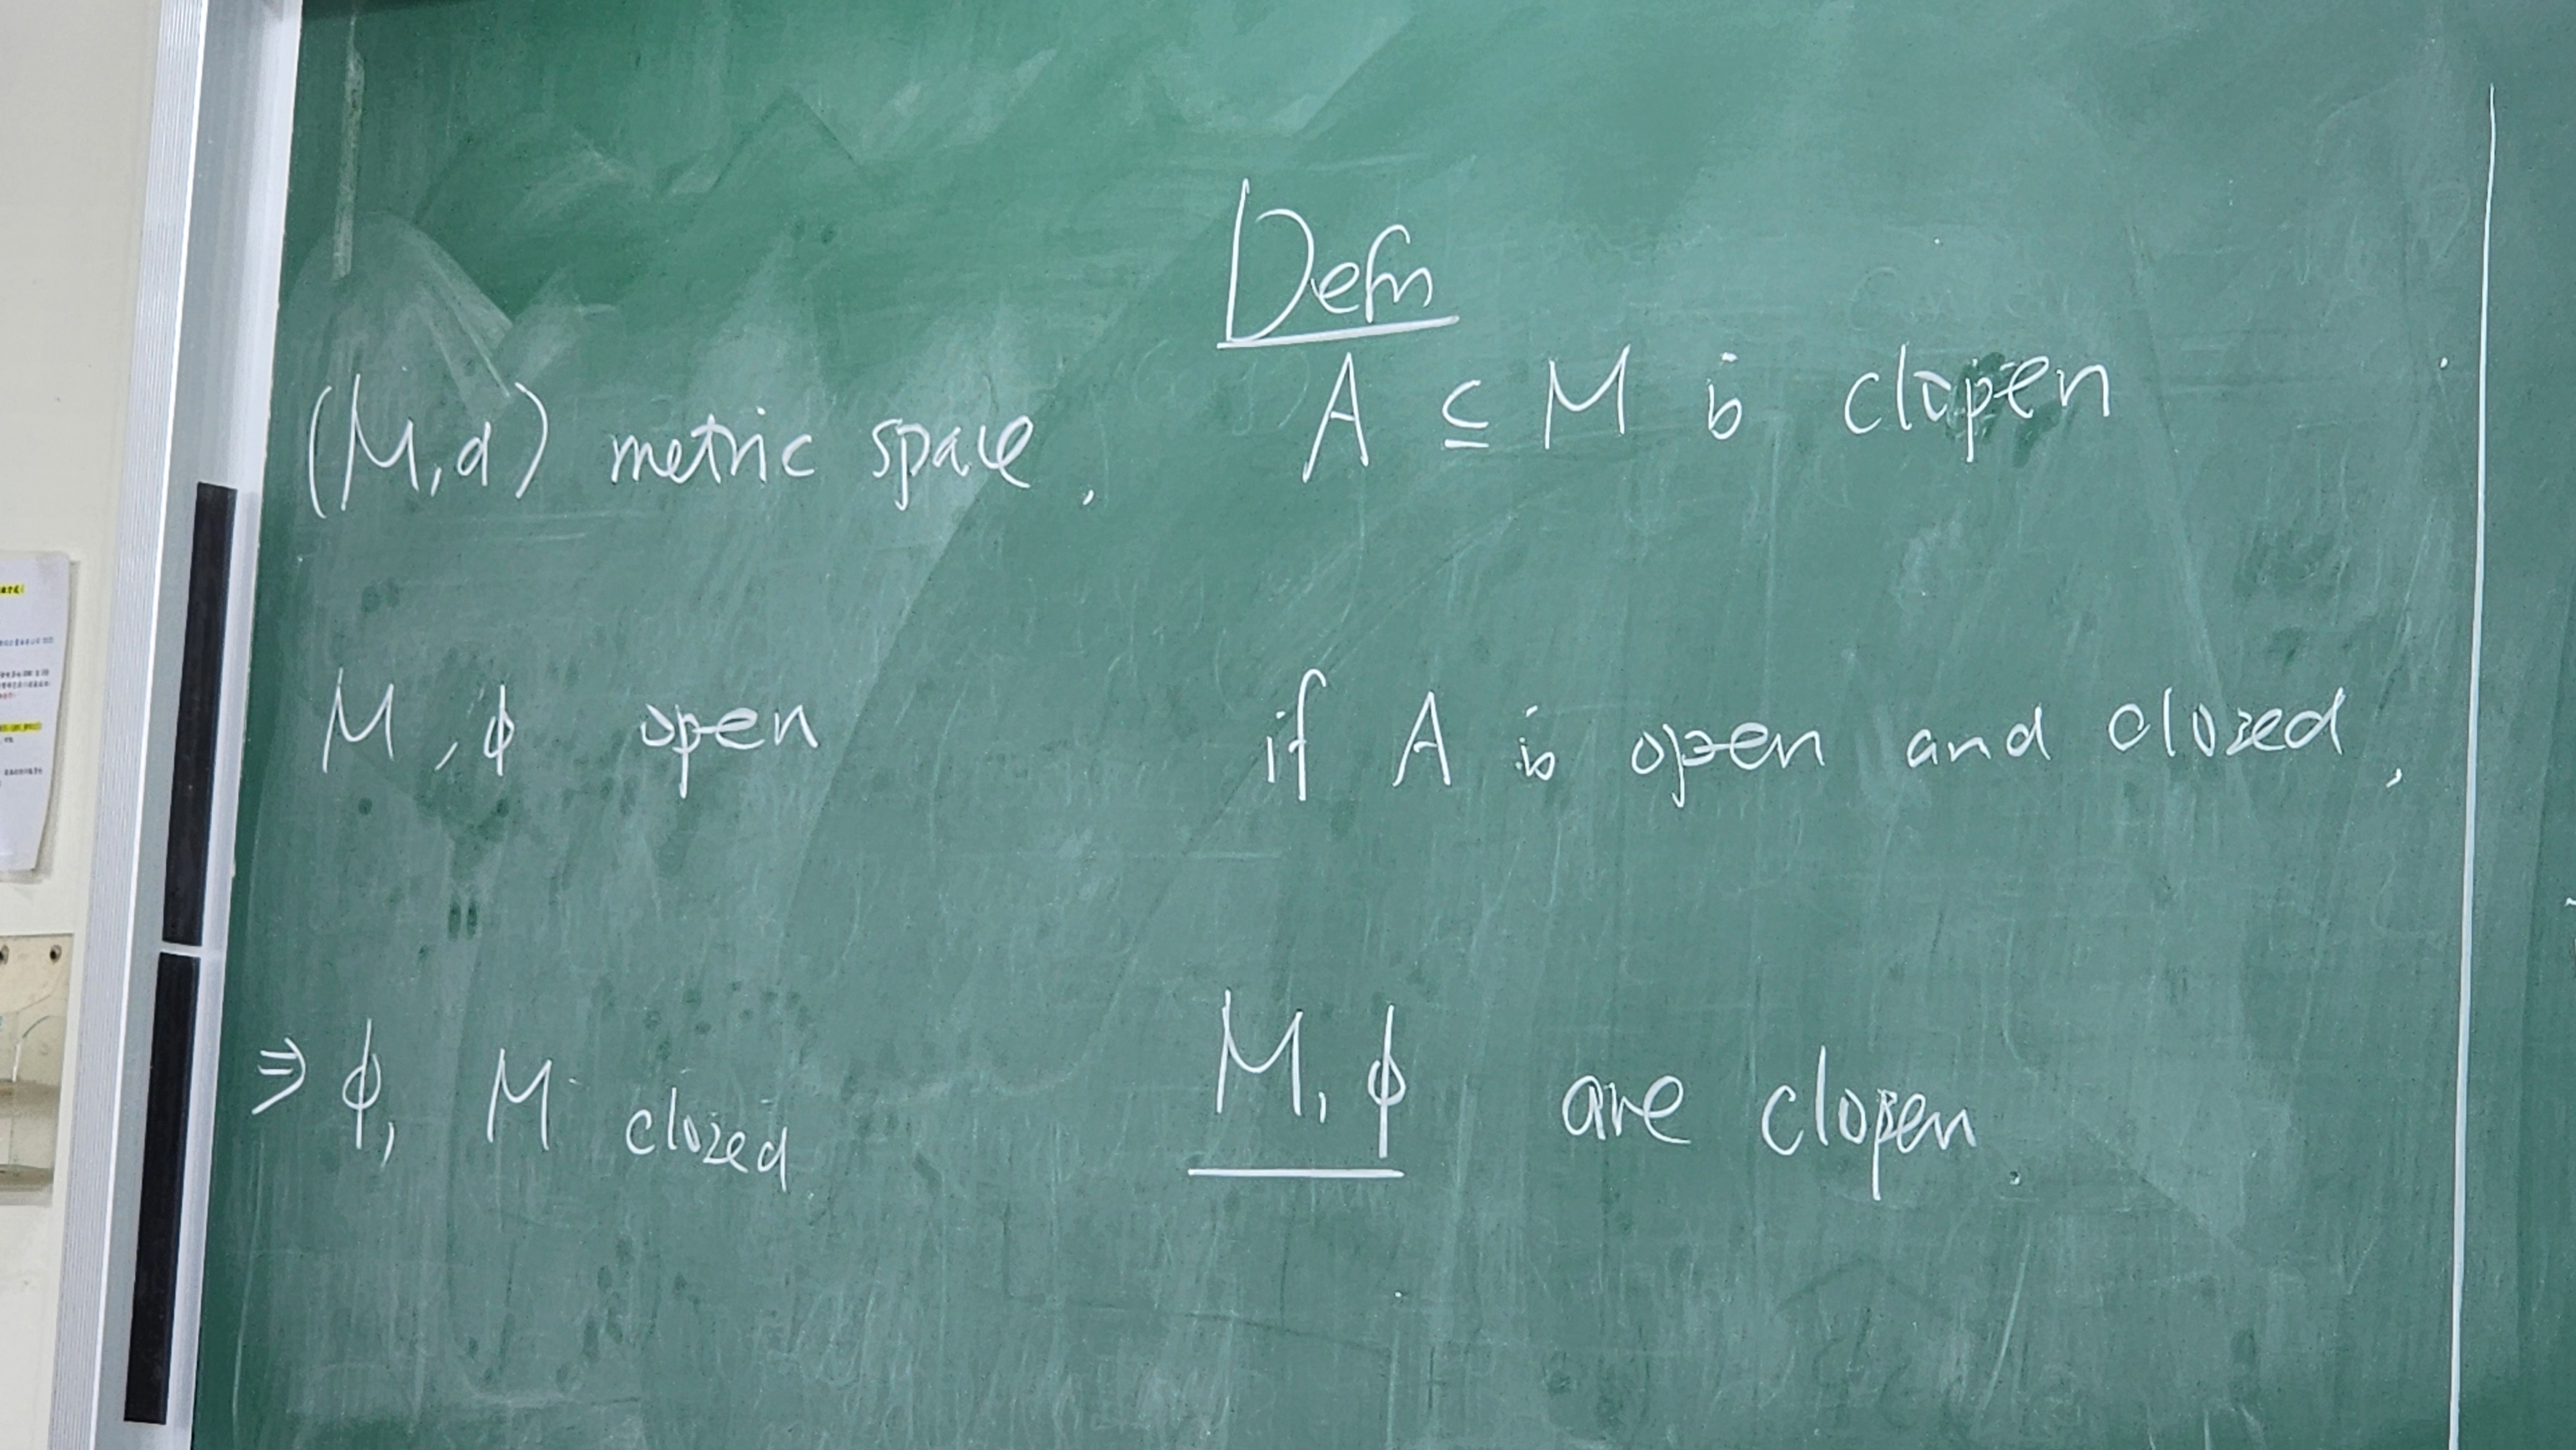 (M,d) metric space.
M, ϕ open
⇒ ϕ, M closed
Defn
A ⊆ M is clopen
if A is open and closed.
M, ϕ are clopen.